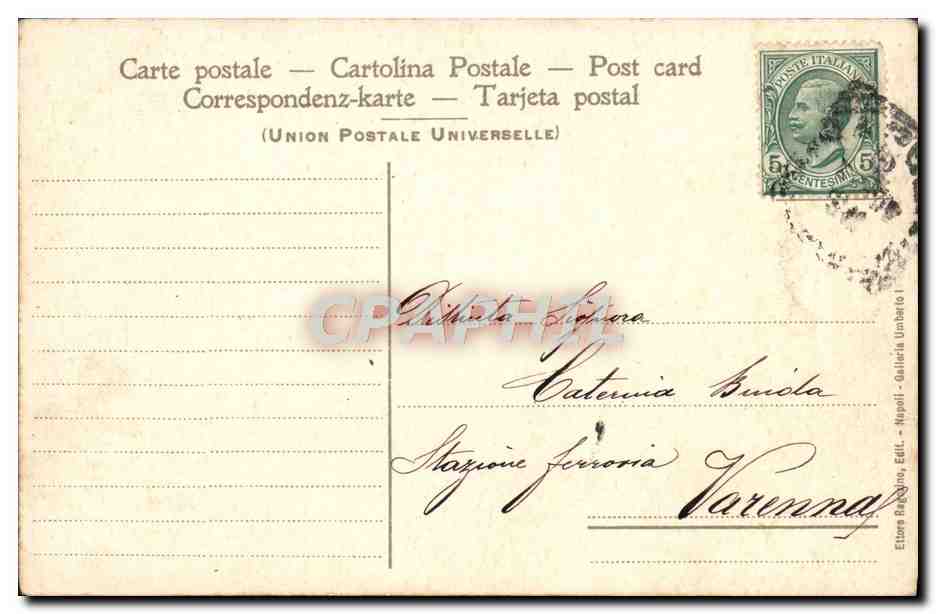 Carte postale — Cartolina Postale — Post card
Correspondenz-karte — Tarjeta postal
(UNION POSTALE UNIVERSELLE)
POSTE ITALIANE
5 5
CENTESIMI
CPAPHIL
Distinta Signora
Caterina
Stazione ferrovia
Varenna
Ettore Ragozino, Edit. - Napoli - Galleria Umberto I